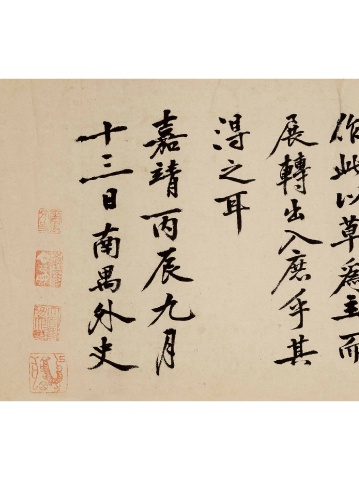 作此以草爲主而
展轉出入庶乎其
得之耳
嘉靖丙辰九月
十三日南禺外史